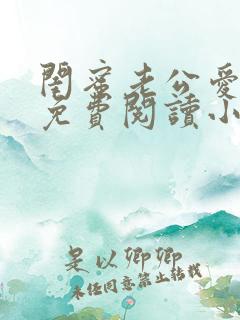 閨蜜老公愛
免費閱讀小
是以卿卿
未经同意禁止转载